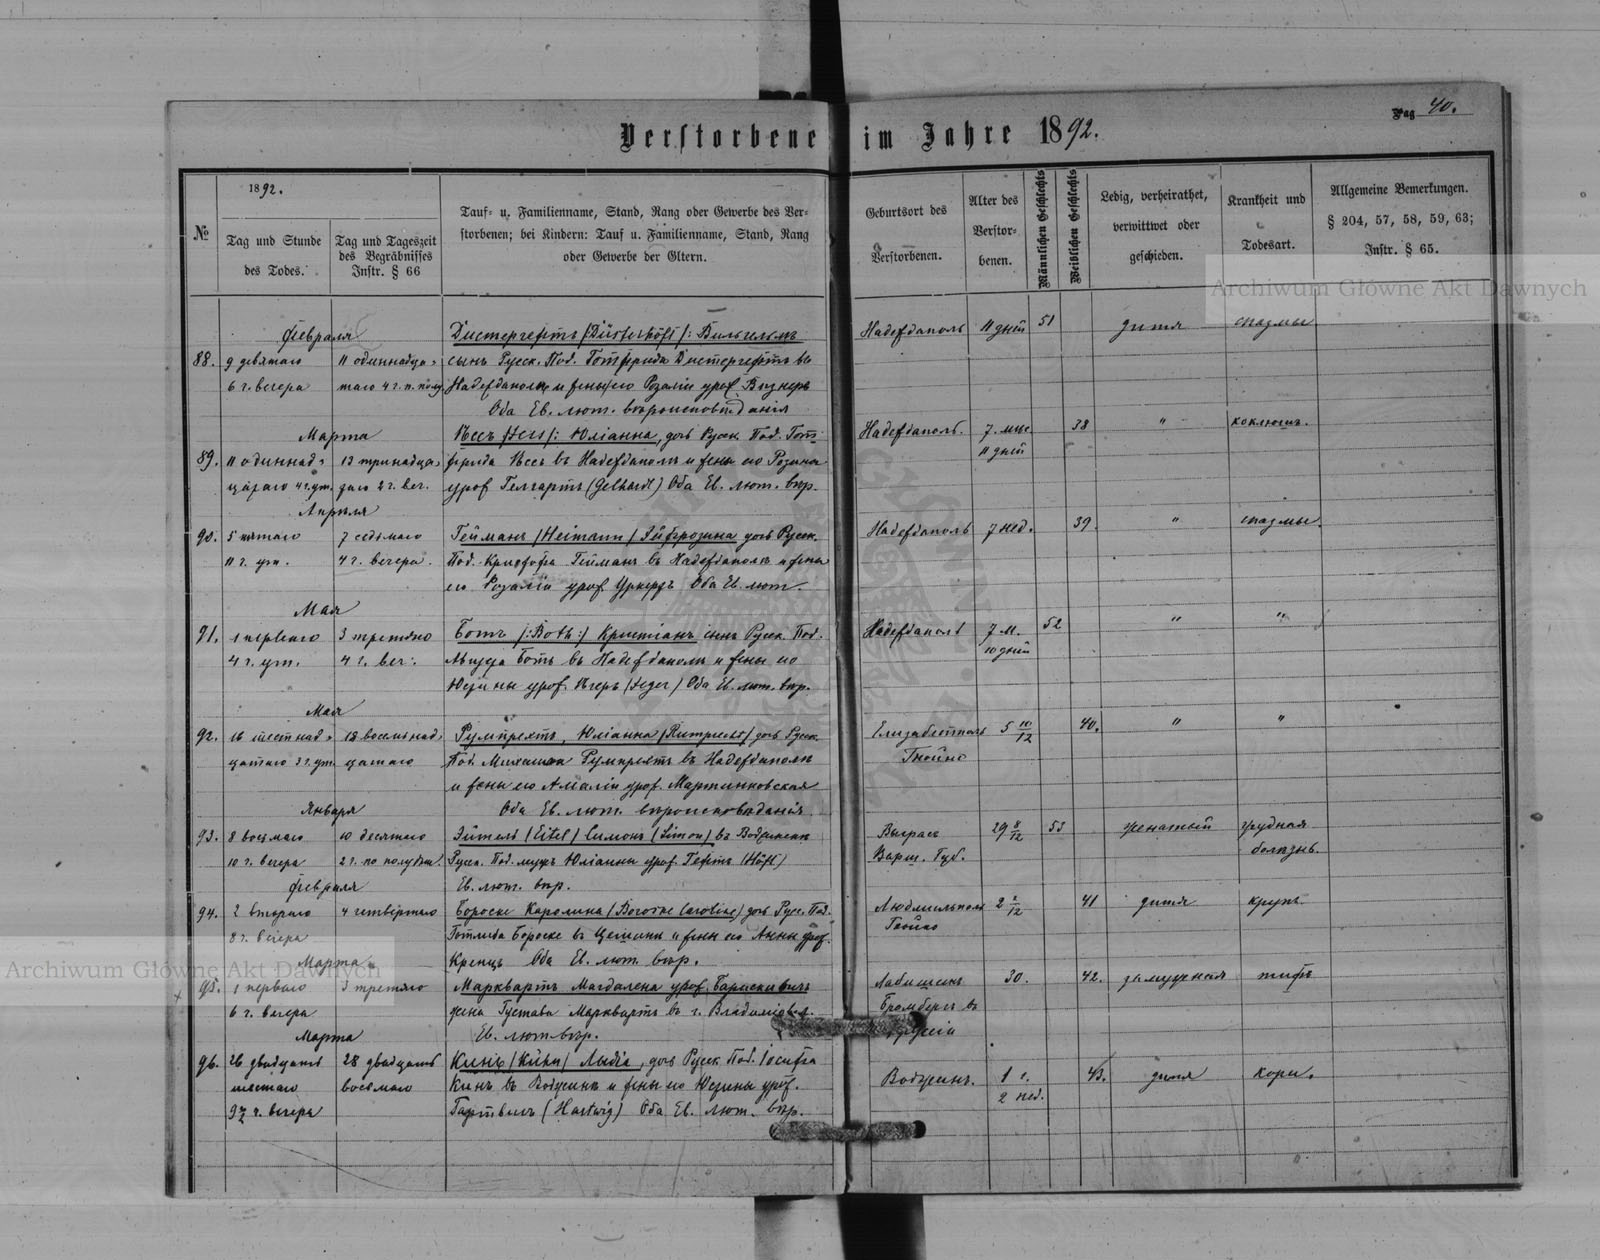 Pag 40.
Verstorbene im Jahre 1892.
№
1892.
Tag und Stunde des Todes.
Tag und Tageszeit des Begräbnisses Instr. § 66
Tauf- u. Familienname, Stand, Rang oder Gewerbe des Ver-
storbenen; bei Kindern: Tauf u. Familienname, Stand, Rang
oder Gewerbe der Eltern.
Geburtsort des Verstorbenen.
Alter des Verstor-benen.
Männlichen Geschlechts
Weiblichen Geschlechts
Ledig, verheirathet, verwittwet oder geschieden.
Krankheit und Todesart.
Allgemeine Bemerkungen.
§ 204, 57, 58, 59, 63;
Instr. § 65.
Archiwum Główne Akt Dawnych
Февраля Дистергефтъ /Düsterhöft/: Вильгельмъ 11 дней 51 дитя спазмы
88. 9 девятаго 11 одиннадца- сынъ Русск. Под. Готфрида Дистергефтъ въ
6 г. вечера таго 4 г. п. полу. и жены его Розаліи урож. Визнеръ
Оба Ев. лют. вѣроисповѣданія
Марта Юліанна, дочь Русск. Под. Гот 7. мце. 38 " коклюшъ.
11 дней
89. 11 одиннад- 13 тринадца- фрида въ и жены его Розины
цатаго 4 г. ут. 2 г. веч. урож Гелгартъ (Gelhardt) Оба Ев. лют. вѣр.
Апрѣля
90. 5 пятаго 7 седьмаго Гейманъ /Heimann/ Эйфрозина дочь Русск. 7 нед. 39. " спазмы.
11 г. ут. 4 г. вечера. Под. Кристофа Гейманъ въ и жены
его Розаліи урож Оба Ев. лют.
Мая
91. 1 перваго 3 третяго Ботъ /: Both :/ Кристіанъ сынъ Русск. Под. 7 м. 52 " "
10 дней
4 г. ут. 4 г. веч. Ботъ въ и жены его
урож. Егеръ (Jeger) Оба Ев. лют. вѣр.
Мая
92. 16 шестнад- 18 восемнад- Румпрехтъ, Юліанна /Rumprecht/ дочь Русск. 5 10/12 40. " "
цатаго 3 г. ут. цатаго Под. Михаила Румпрехтъ въ
и жены его Амаліи урож. Мартинковская
Января Оба Ев. лют. вѣроисповѣданія
93. 8 восмаго 10 десятаго Эйтель (Eitel) Симонъ (Simon) въ 29 8/12 53 женатый грудная
болѣзнь.
10 г. вечера 2 г. по полудни. Русск. Под. мужъ Юліанны урож. Гефтъ (Höft) Варш. Губ.
Февраля Ев. лют. вѣр.
94. 2 втораго 4 четвертаго Бороске Каролина (Boroske Caroline) дочь Русс. Под. Людмильполь 2 2/12 41 дитя крупъ.
8 г. вечера Готлиба Бороске въ и жены его Анны урож.
Марта Кренцъ Оба Ев. лют. вѣр.
Archiwum Główne Akt Dawnych
95. 1 перваго 3 третяго Марквартъ Магдалена урож. 30. 42. замужная тифъ
6 г. вечера жена Густава Марквартъ въ г. Бромбергъ въ
Марта Ев. лют. вѣр.
96. 26 двадцать 28 двадцать Кинъ /Kühn/ Лидіа, дочь Русск. Под. Іосифа 1 г. 43. дитя кори.
2 нед.
шестаго восьмаго Кинъ въ и жены его урож.
9½ г. вечера Гартвигъ (Hartwig) Оба Ев. лют. вѣр.